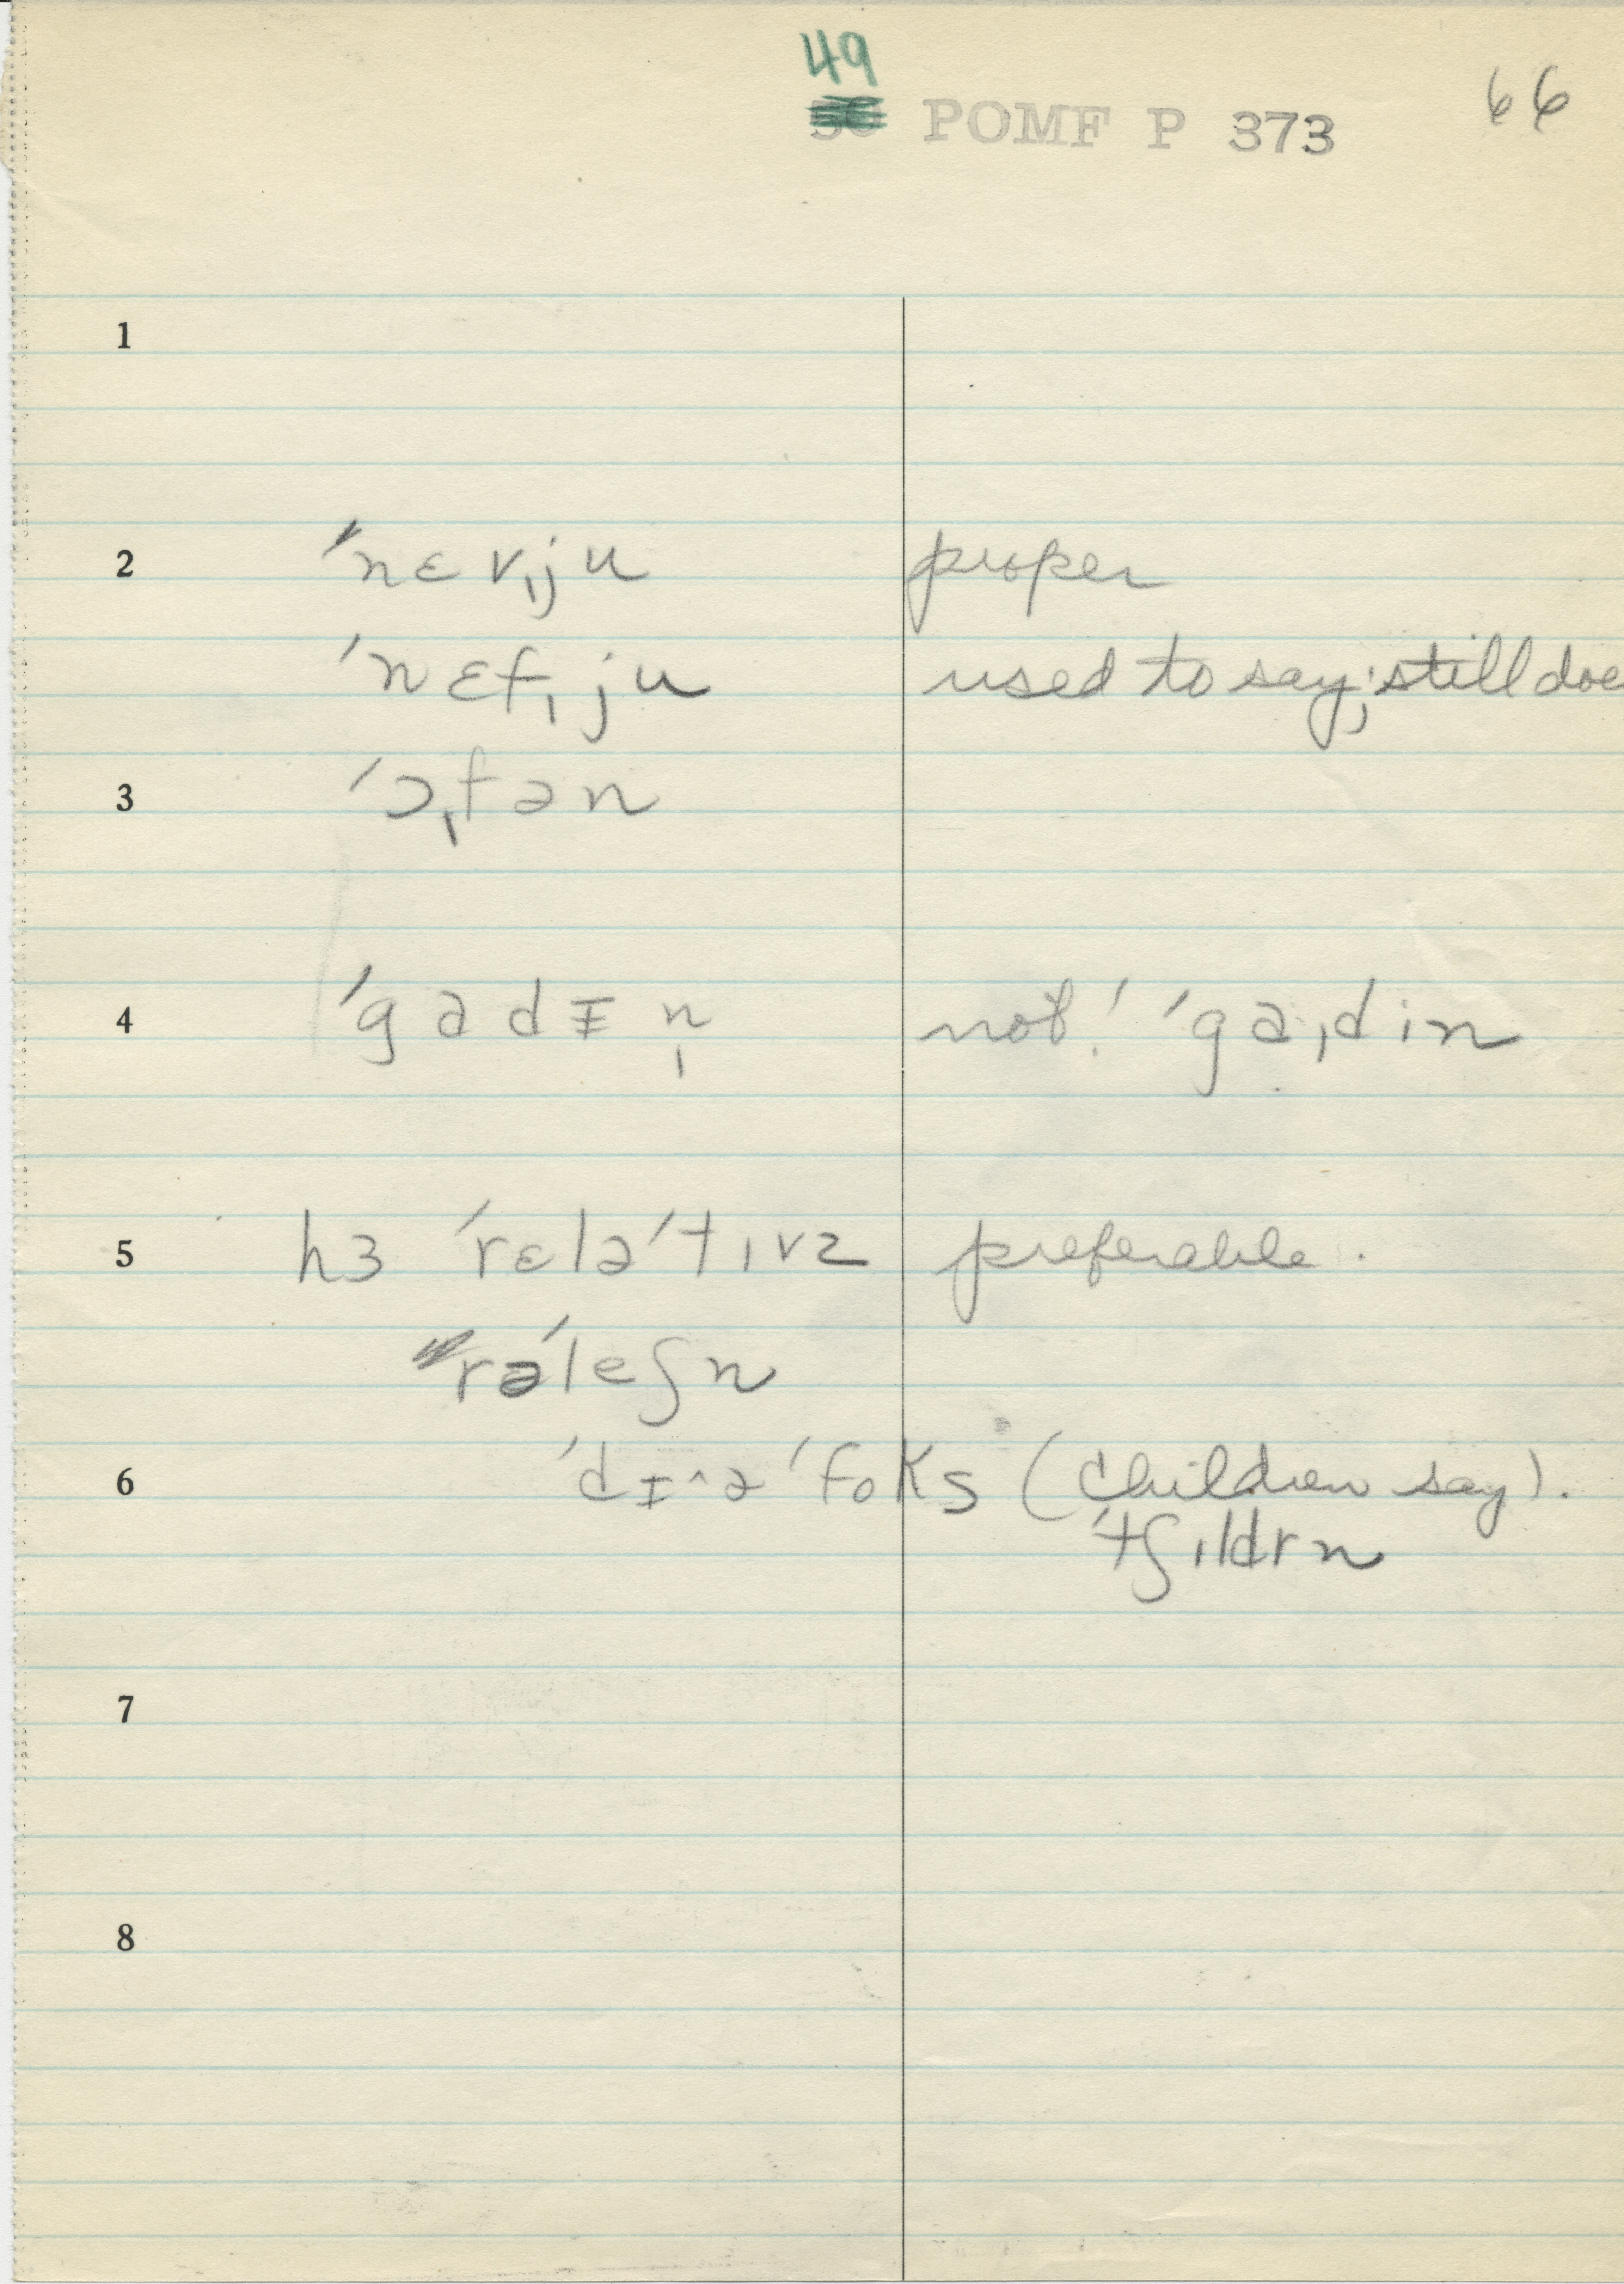 49
POMF P 373 66
1
2 ˈnɛvˌju proper
ˈnɛfˌju used to say; still doe
3 ˈɔˌfən
4 ˈgadɪn̩ not! ˈgaˌdin
5 hɜ ˈrɛləˈtɪvz preferable.
rəˈleʃn
6 ˈdɪ^ə ˈfoks (children say).
ˈtʃɪldrn
7
8